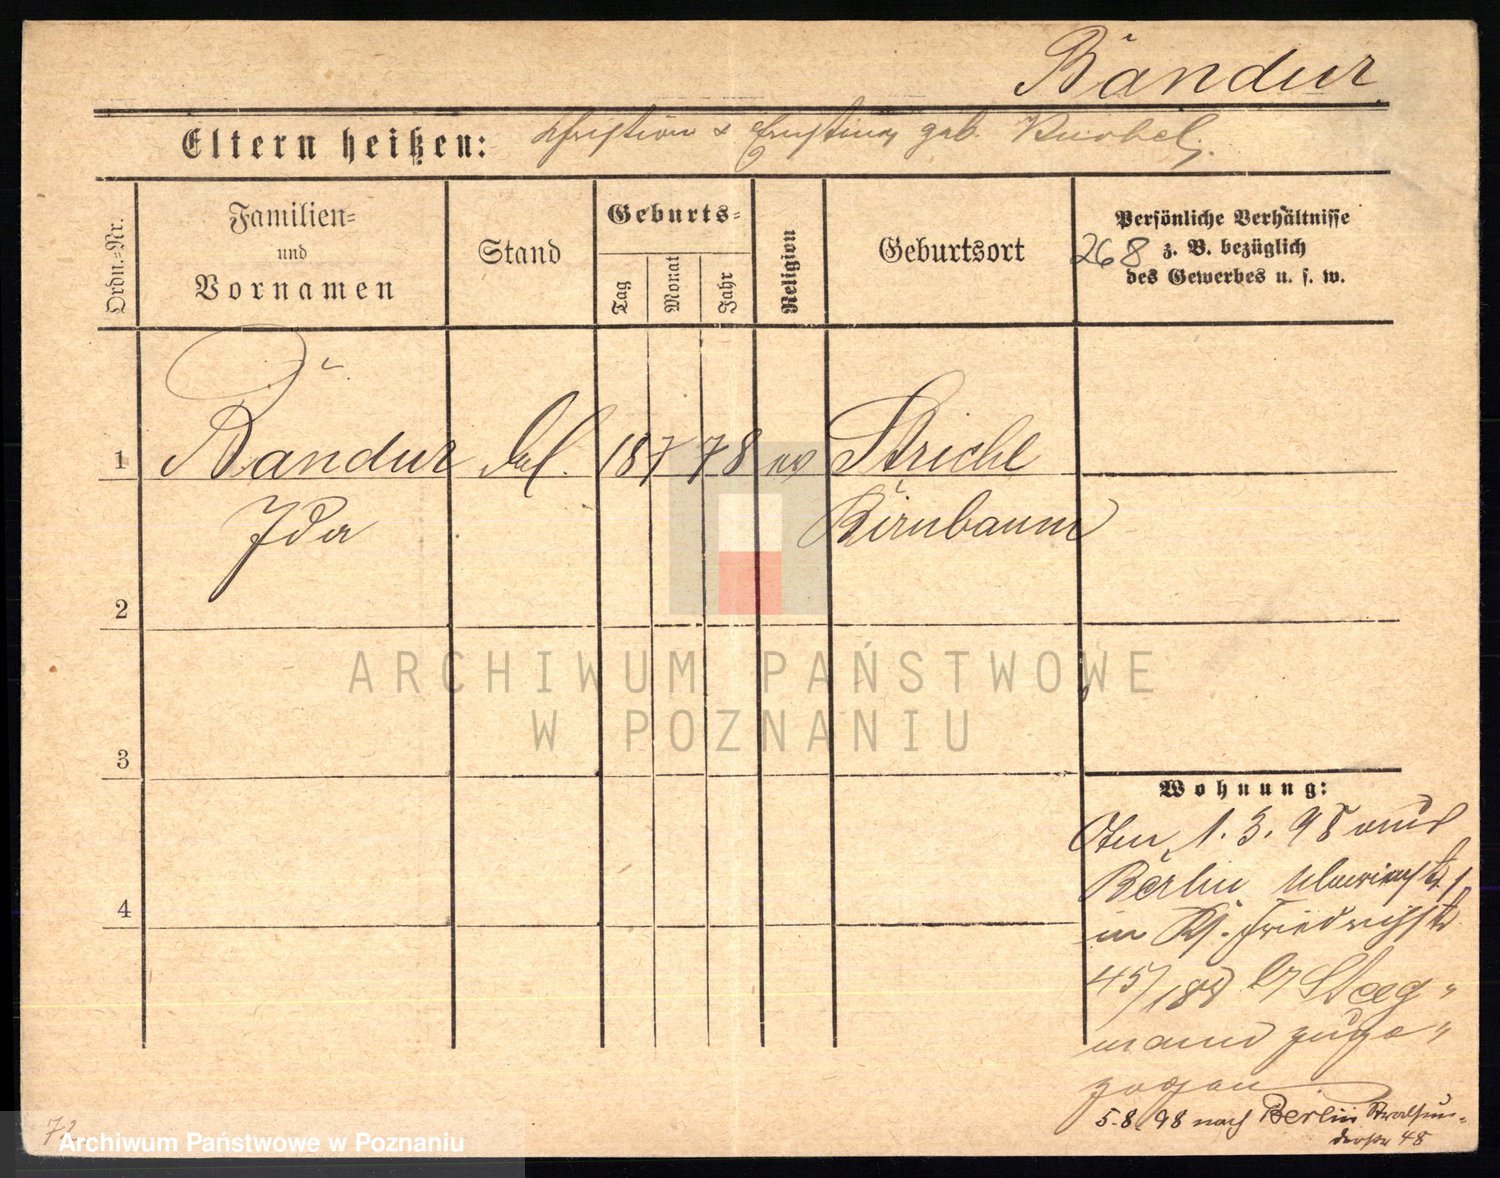 Bandur
Eltern heißen: Christian & Ernstine geb. Knobel
Ordn.-Nr.
Familien-
und
Vornamen
Stand
Geburts-
Tag
Monat
Jahr
Religion
Geburtsort
Persönliche Verhältnisse
z. B. bezüglich
des Gewerbes u. s. w.
268
1 Bandur 18 7 78 ev Striche
Ida Birnbaum
2
3
4
Wohnung:
Am 1. 3. 98 aus
Berlin
in Friedrichstr
45/ Staeg-
mann zuge-
zogen
5.8.98 nach Berlin Stralsun-
derstr 48
ARCHIWUM PAŃSTWOWE
W POZNANIU
Archiwum Państwowe w Poznaniu